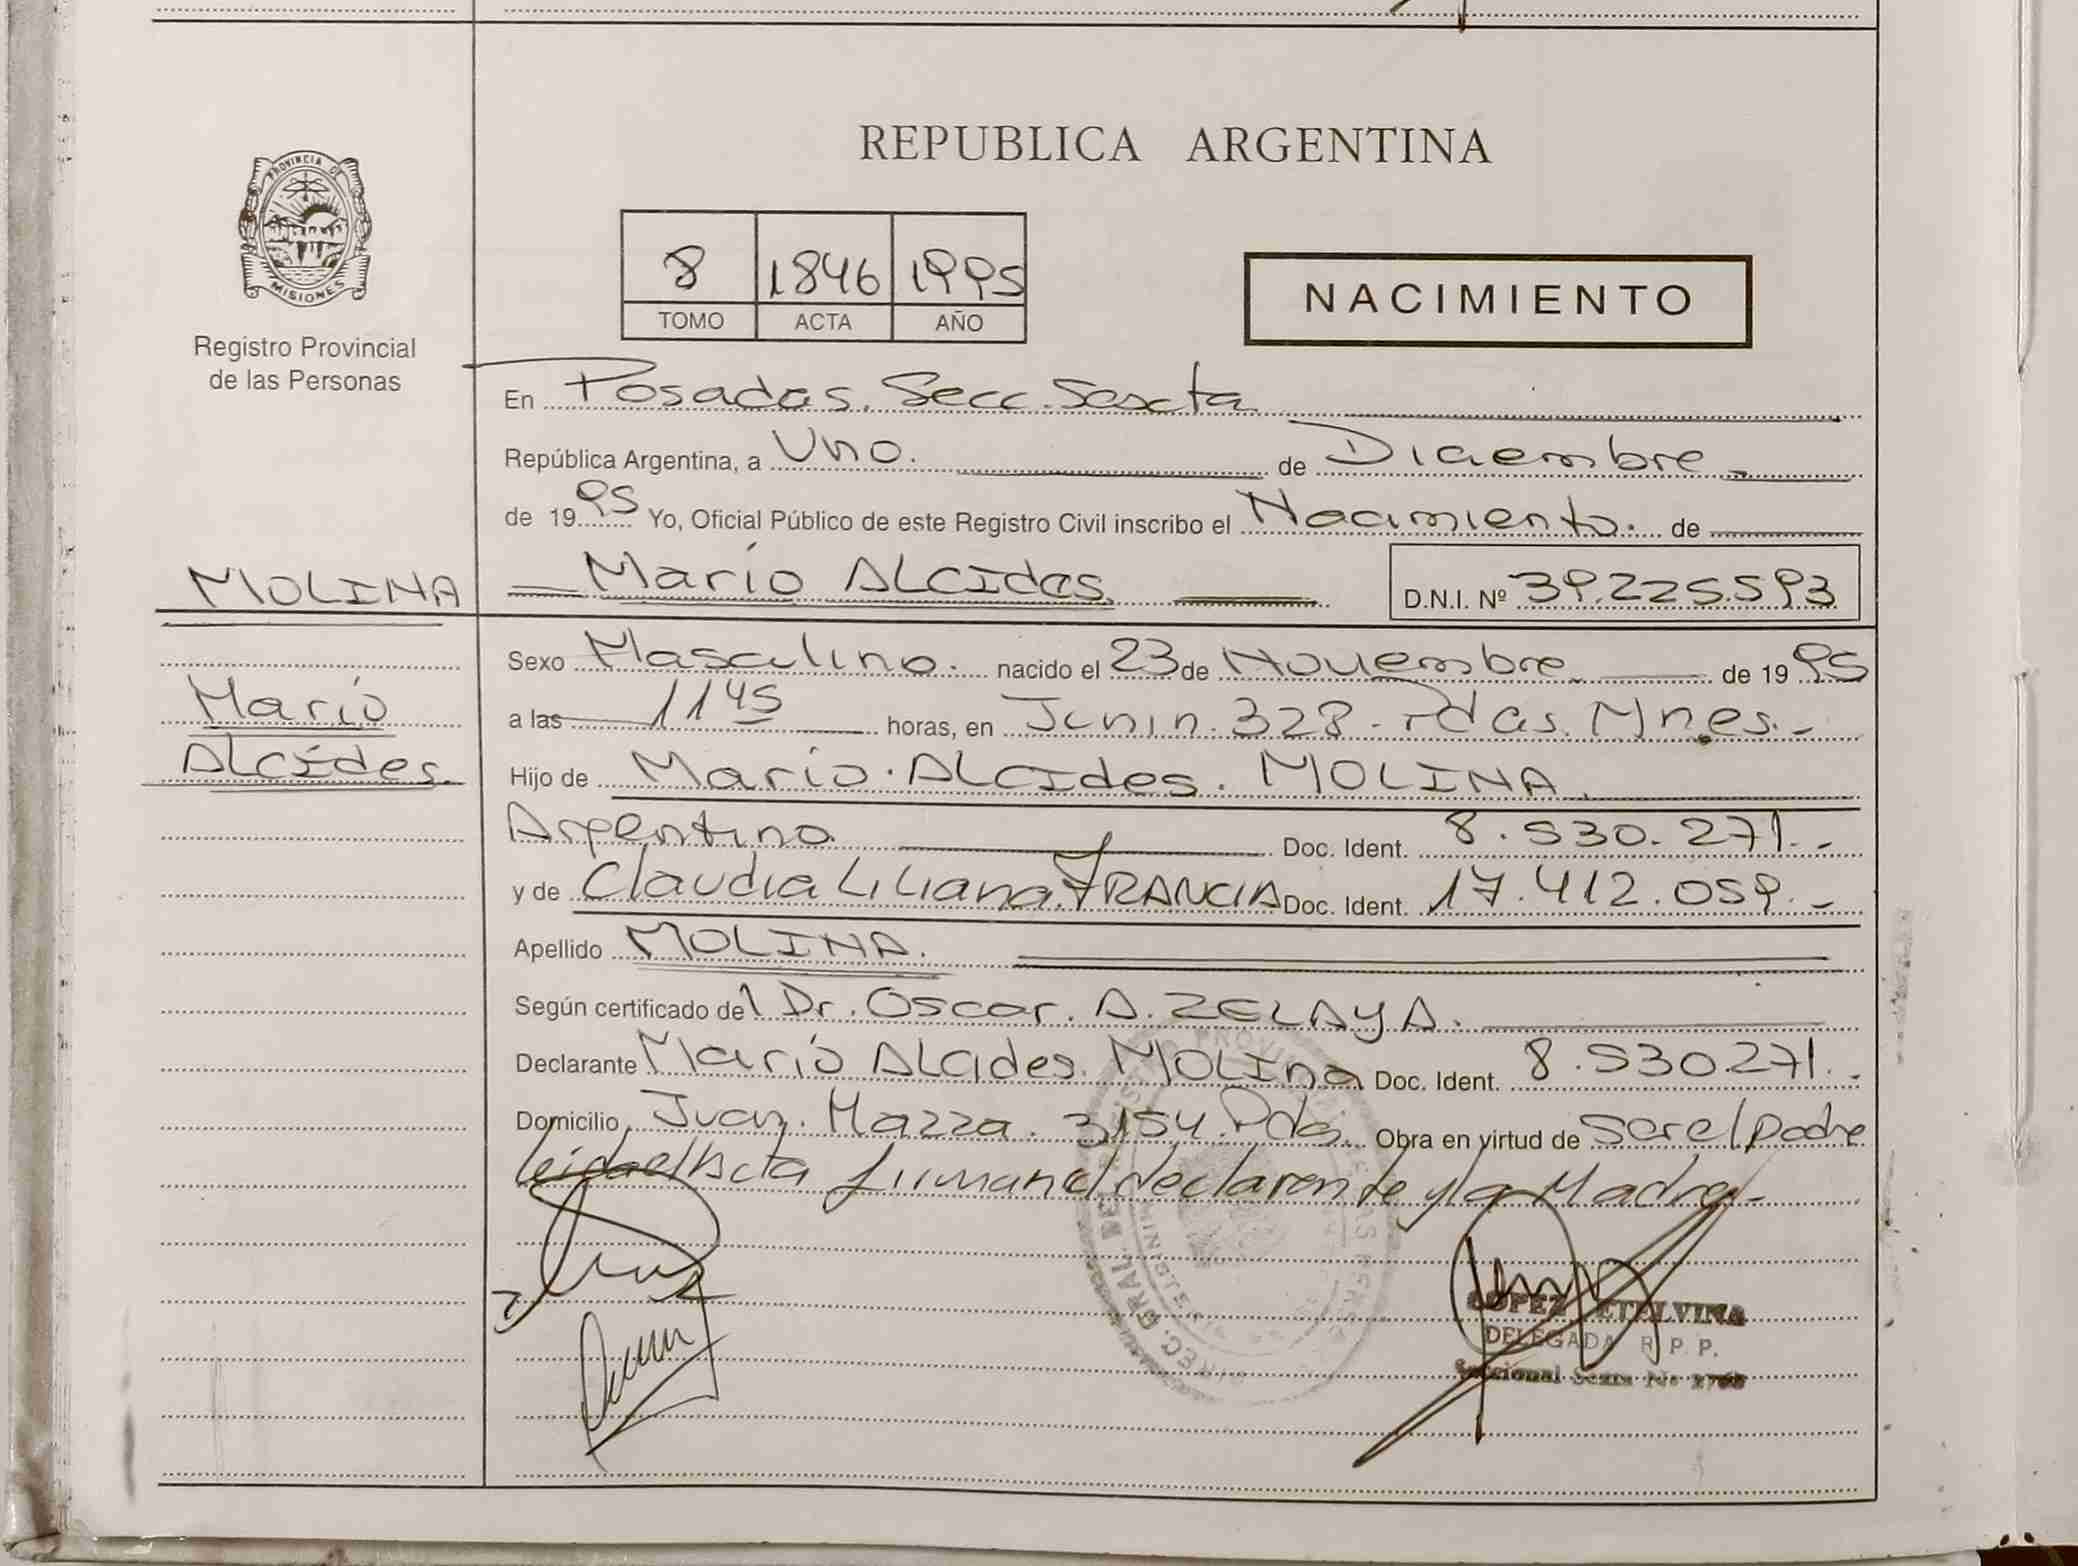 REPUBLICA ARGENTINA
PROVINCIA DE
MISIONES
Registro Provincial
de las Personas
8 1846 1995
TOMO ACTA AÑO
NACIMIENTO
En Posadas. Secc. Sexta
República Argentina, a Uno. de Diciembre
de 1995 Yo, Oficial Público de este Registro Civil inscribo el Nacimiento. de
MOLINA
Mario ALcides
Mario ALCIdes D.N.I. Nº 39.225.593
Sexo Masculino. nacido el 23 de Noviembre de 1995
a las 11 45 horas, en Junin. 328 - Pdas. Mnes. -
Hijo de Mario. ALCIdes. MOLINA.
Argentino Doc. Ident. 8.530.271.-
y de Claudia Liliana. FRANCIA Doc. Ident. 17.412.059.-
Apellido MOLINA.
Según certificado del Dr. Oscar. A. ZELAYA.
Declarante Mario ALcides. MOLINA Doc. Ident. 8.530271.-
Domicilio Juan. Mazza. 3154. Pdas. Obra en virtud de ser el padre
leida el Acta firman el declarante y la Madre-
LOPEZ ETELVINA
DELEGADA R. P. P.
Seccional Sexta Nº